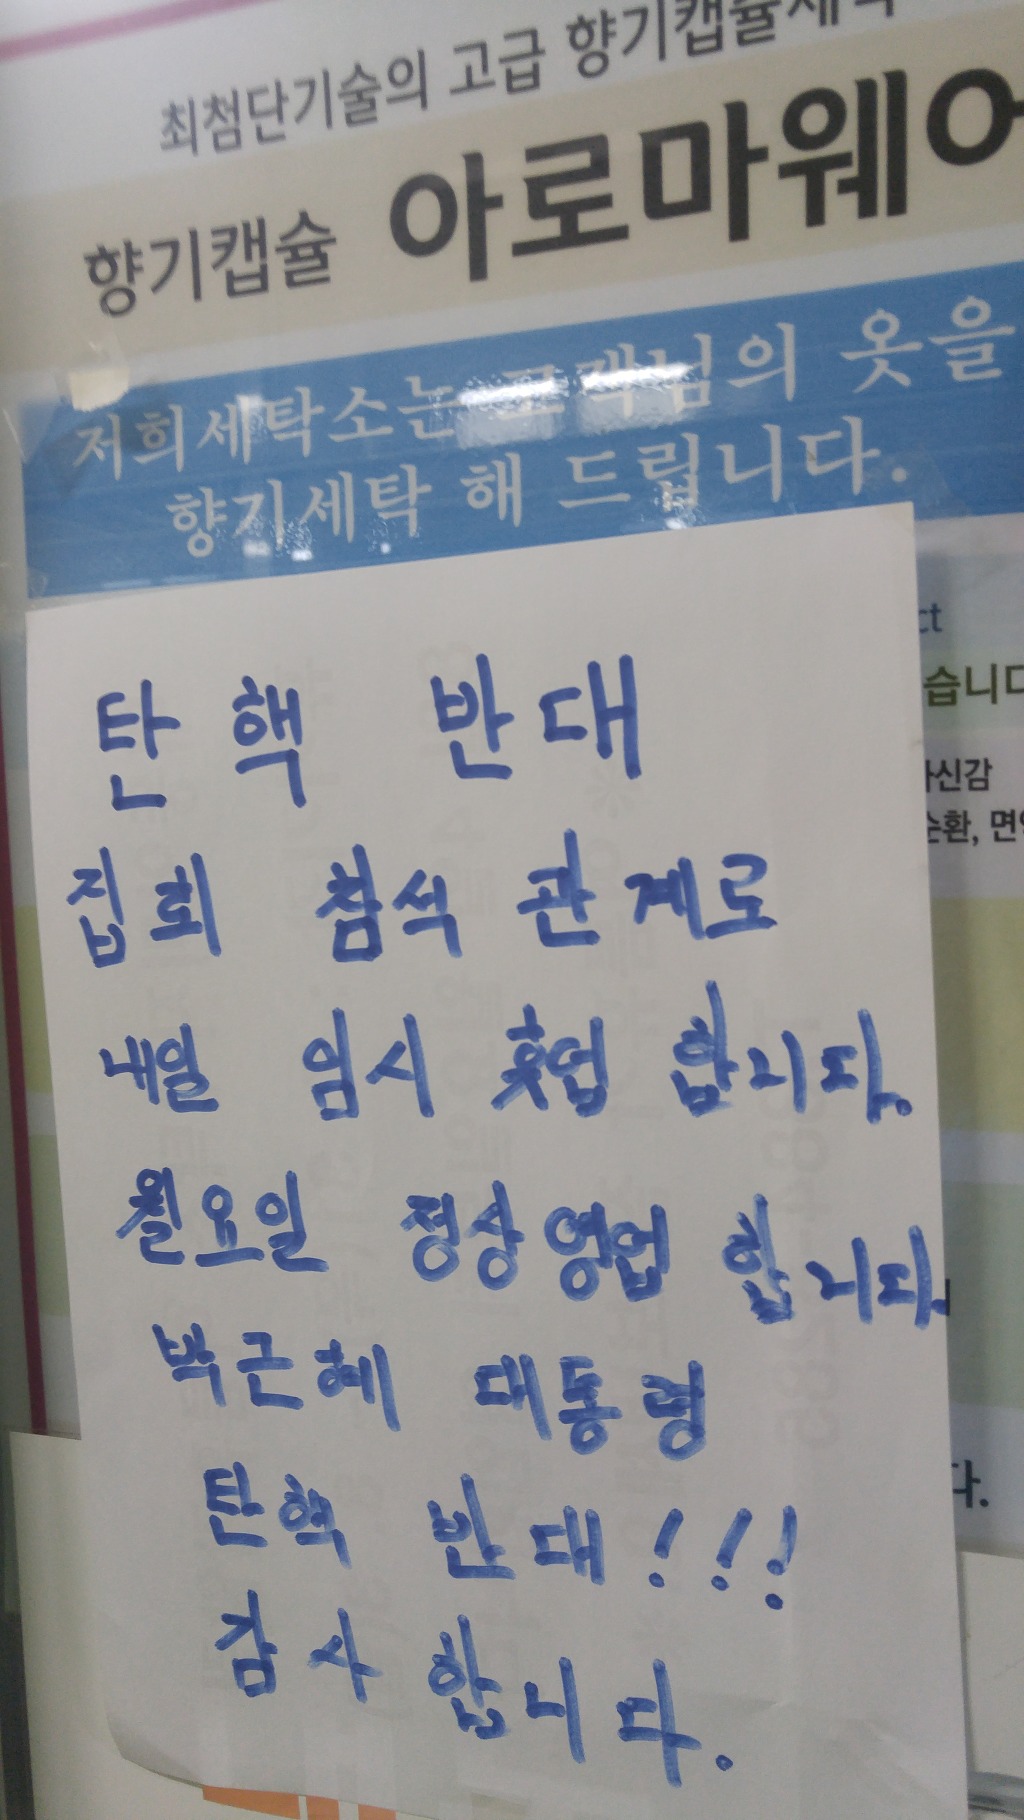 최첨단기술의 고급 향기캡슐세탁
향기캡슐 아로마웨어
저희세탁소는 고객님의 옷을
향기세탁 해 드립니다.
ct
습니다
자신감
순환, 면역
다.
탄핵 반대
집회 참석 관계로
내일 임시 휴업 합니다.
월요일 정상영업 합니다.
박근혜 대통령
탄핵 반대!!!
감사합니다.